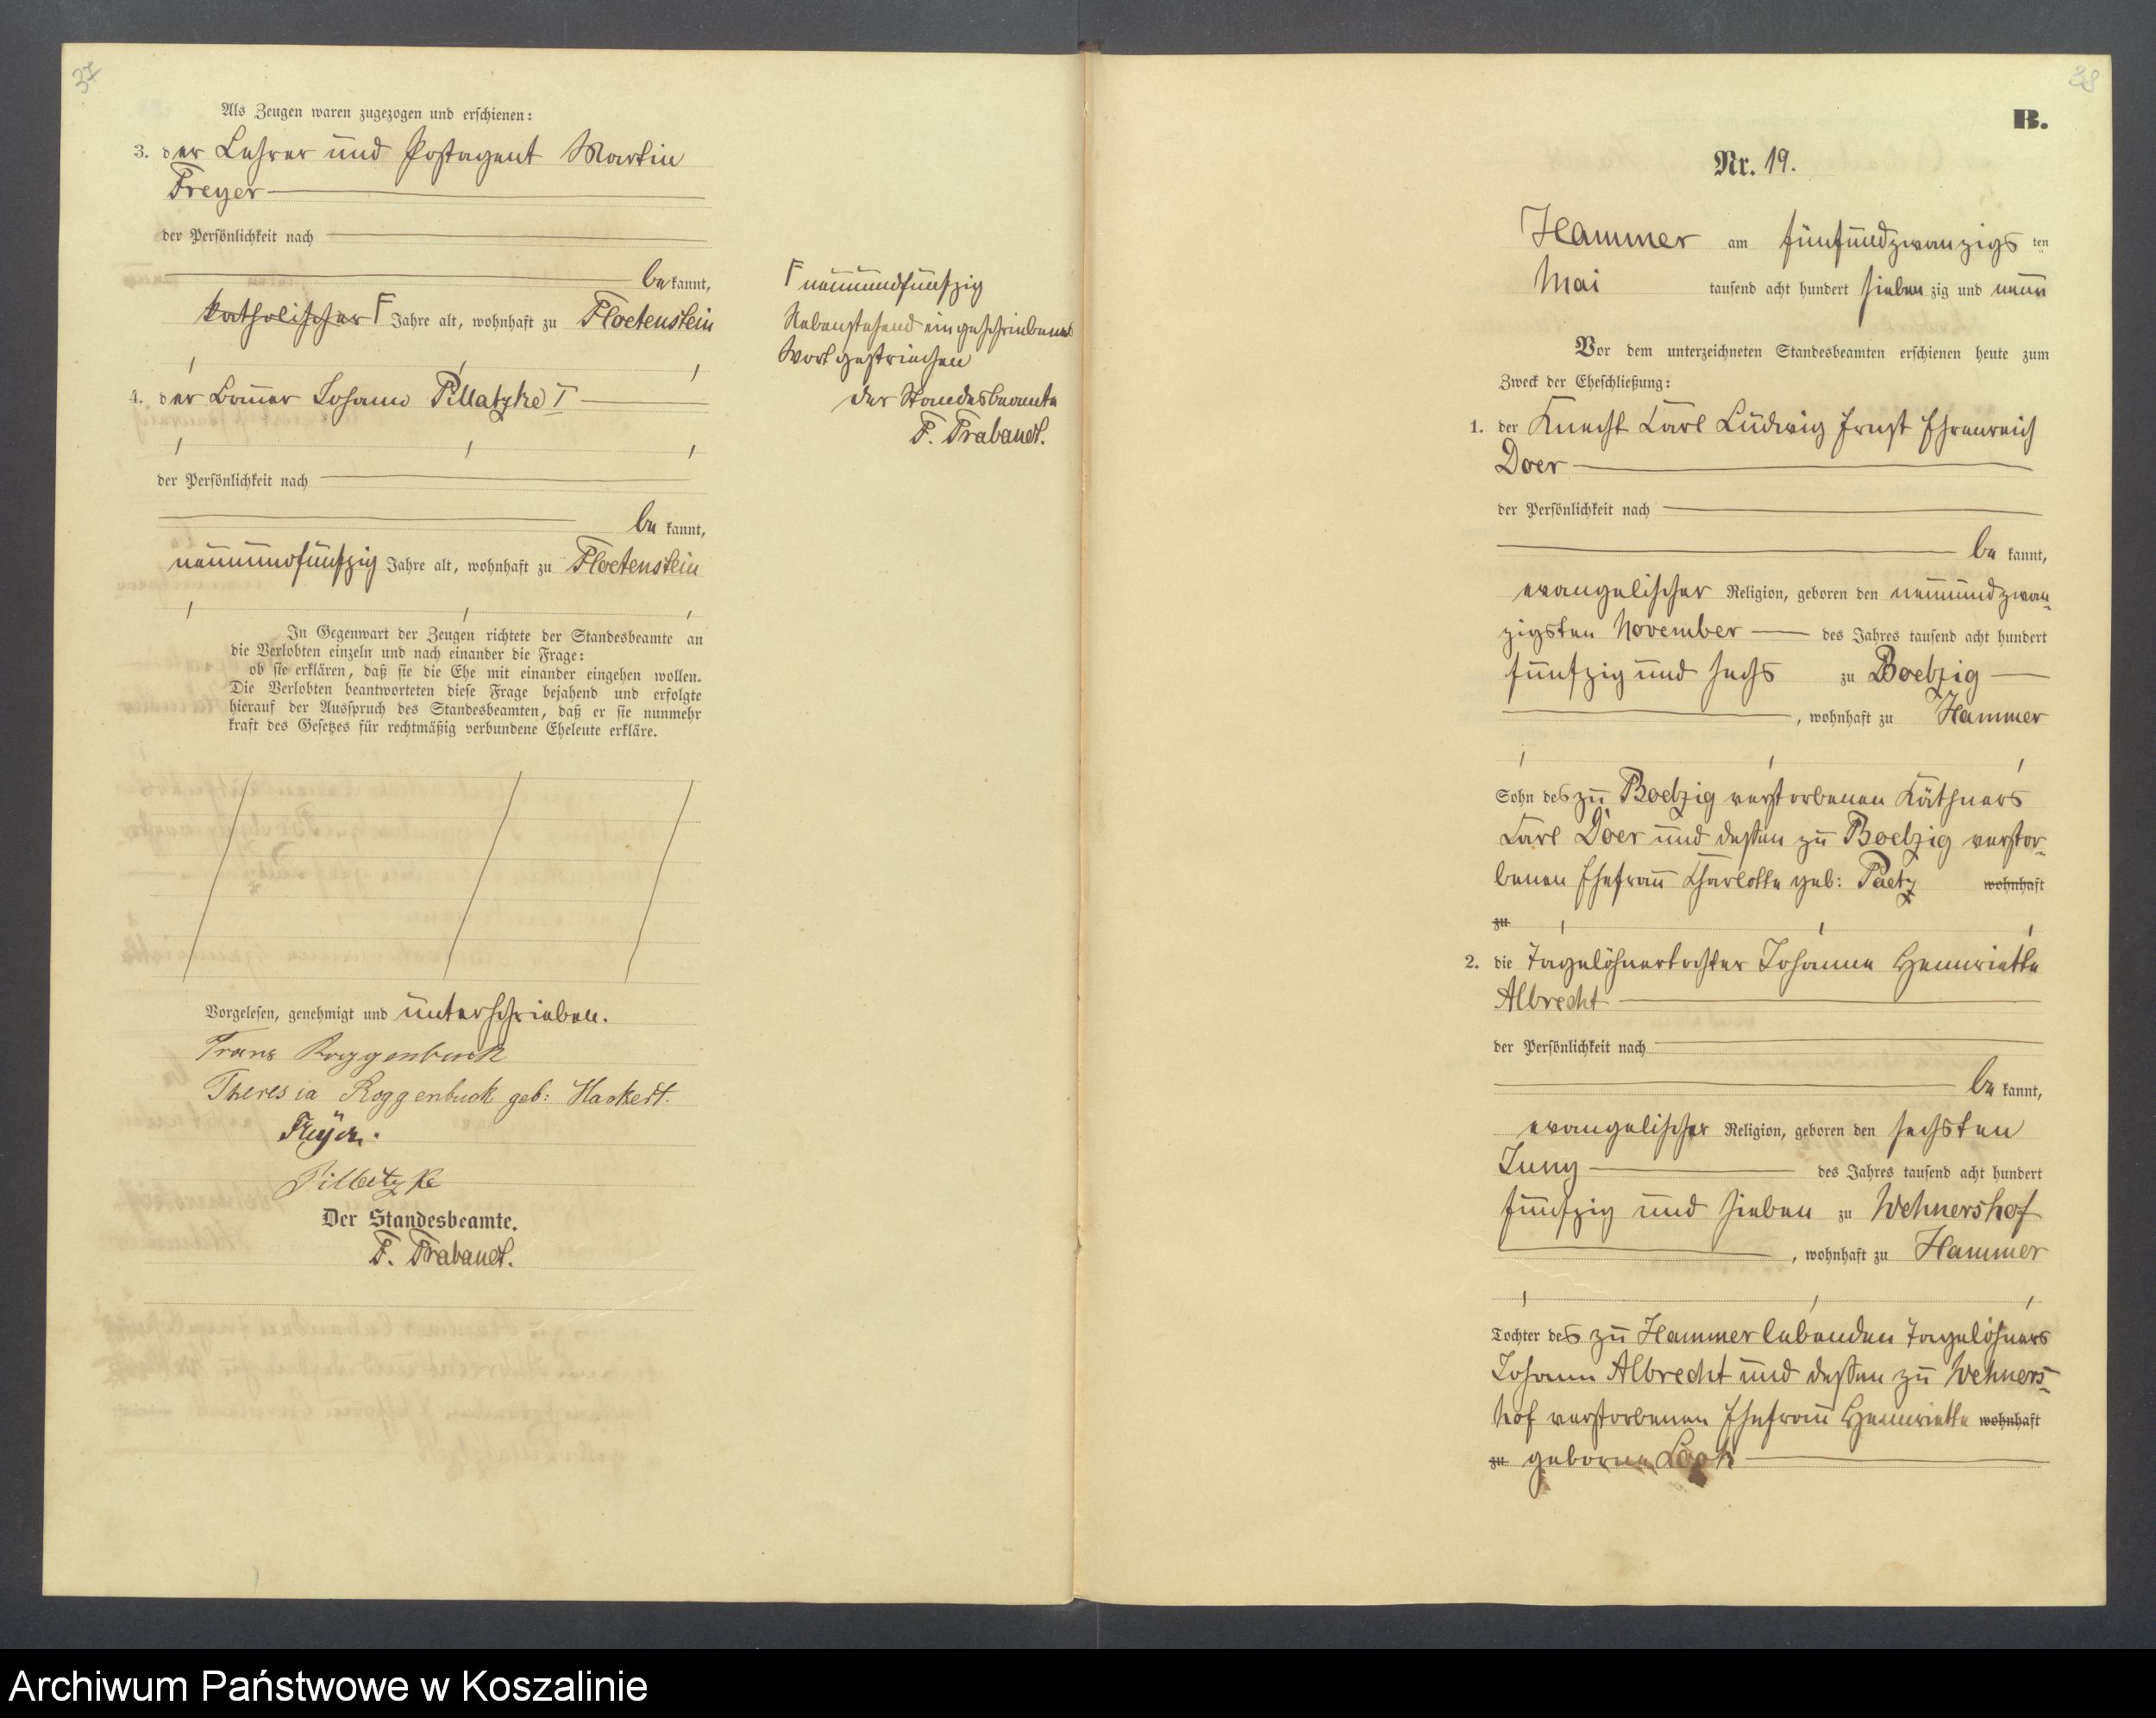 37
Als Zeugen waren zugezogen und erschienen:
3. der Lehrer und Postagent Martin
Freyer
der Persönlichkeit nach
be kannt,
katholischer F Jahre alt, wohnhaft zu Floetenstein
4. der Bauer Johann Pillatzke I
der Persönlichkeit nach
be kannt,
neunundfünfzig Jahre alt, wohnhaft zu Floetenstein
In Gegenwart der Zeugen richtete der Standesbeamte an
die Verlobten einzeln und nach einander die Frage:
ob sie erklären, daß sie die Ehe mit einander eingehen wollen.
Die Verlobten beantworteten diese Frage bejahend und erfolgte
hierauf der Ausspruch des Standesbeamten, daß er sie nunmehr
kraft des Gesetzes für rechtmäßig verbundene Eheleute erkläre.
Vorgelesen, genehmigt und unterschrieben.
Franz Roggenbuck
Theresia Roggenbuck geb: Hackert.
Freyer.
Pillatzke
Der Standesbeamte.
F. Trabandt.
F neunundfünfzig
Nebenstehend eingeschriebenes
Wort gestrichen
der Standesbeamte
F. Trabandt.
38
B.
Nr. 19.
Hammer am fünfundzwanzigs ten
Mai tausend acht hundert sieben zig und neun
Vor dem unterzeichneten Standesbeamten erschienen heute zum
Zweck der Eheschließung:
1. der Knecht Carl Ludwig Ernst Ehrenreich
Doer
der Persönlichkeit nach
be kannt,
evangelischer Religion, geboren den neunundzwan-
zigsten November des Jahres tausend acht hundert
fünfzig und sechs zu Boelzig
, wohnhaft zu Hammer
Sohn des zu Boelzig verstorbenen Käthners
Carl Doer und dessen zu Boelzig verstor-
benen Ehefrau Charlotte geb: Paetz wohnhaft
zu
2. die Tagelöhnertochter Johanne Hennriette
Albrecht
der Persönlichkeit nach
be kannt,
evangelischer Religion, geboren den sechsten
Juny des Jahres tausend acht hundert
fünfzig und sieben zu Wehnershof
, wohnhaft zu Hammer
Tochter des zu Hammer lebenden Tagelöhners
Johann Albrecht und dessen zu Wehners-
hof verstorbenen Ehefrau Hennriette wohnhaft
zu geborne Look
Archiwum Państwowe w Koszalinie